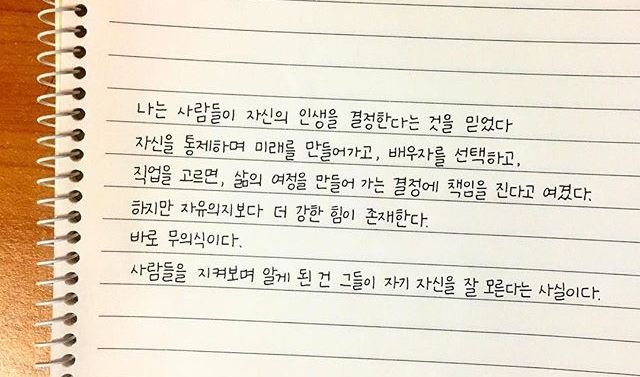 나는 사람들이 자신의 인생을 결정한다는 것을 믿었다
자신을 통제하며 미래를 만들어가고, 배우자를 선택하고,
직업을 고르면, 삶의 여정을 만들어 가는 결정에 책임을 진다고 여겼다.
하지만 자유의지보다 더 강한 힘이 존재한다.
바로 무의식이다.
사람들을 지켜보며 알게 된 건 그들이 자기 자신을 잘 모른다는 사실이다.